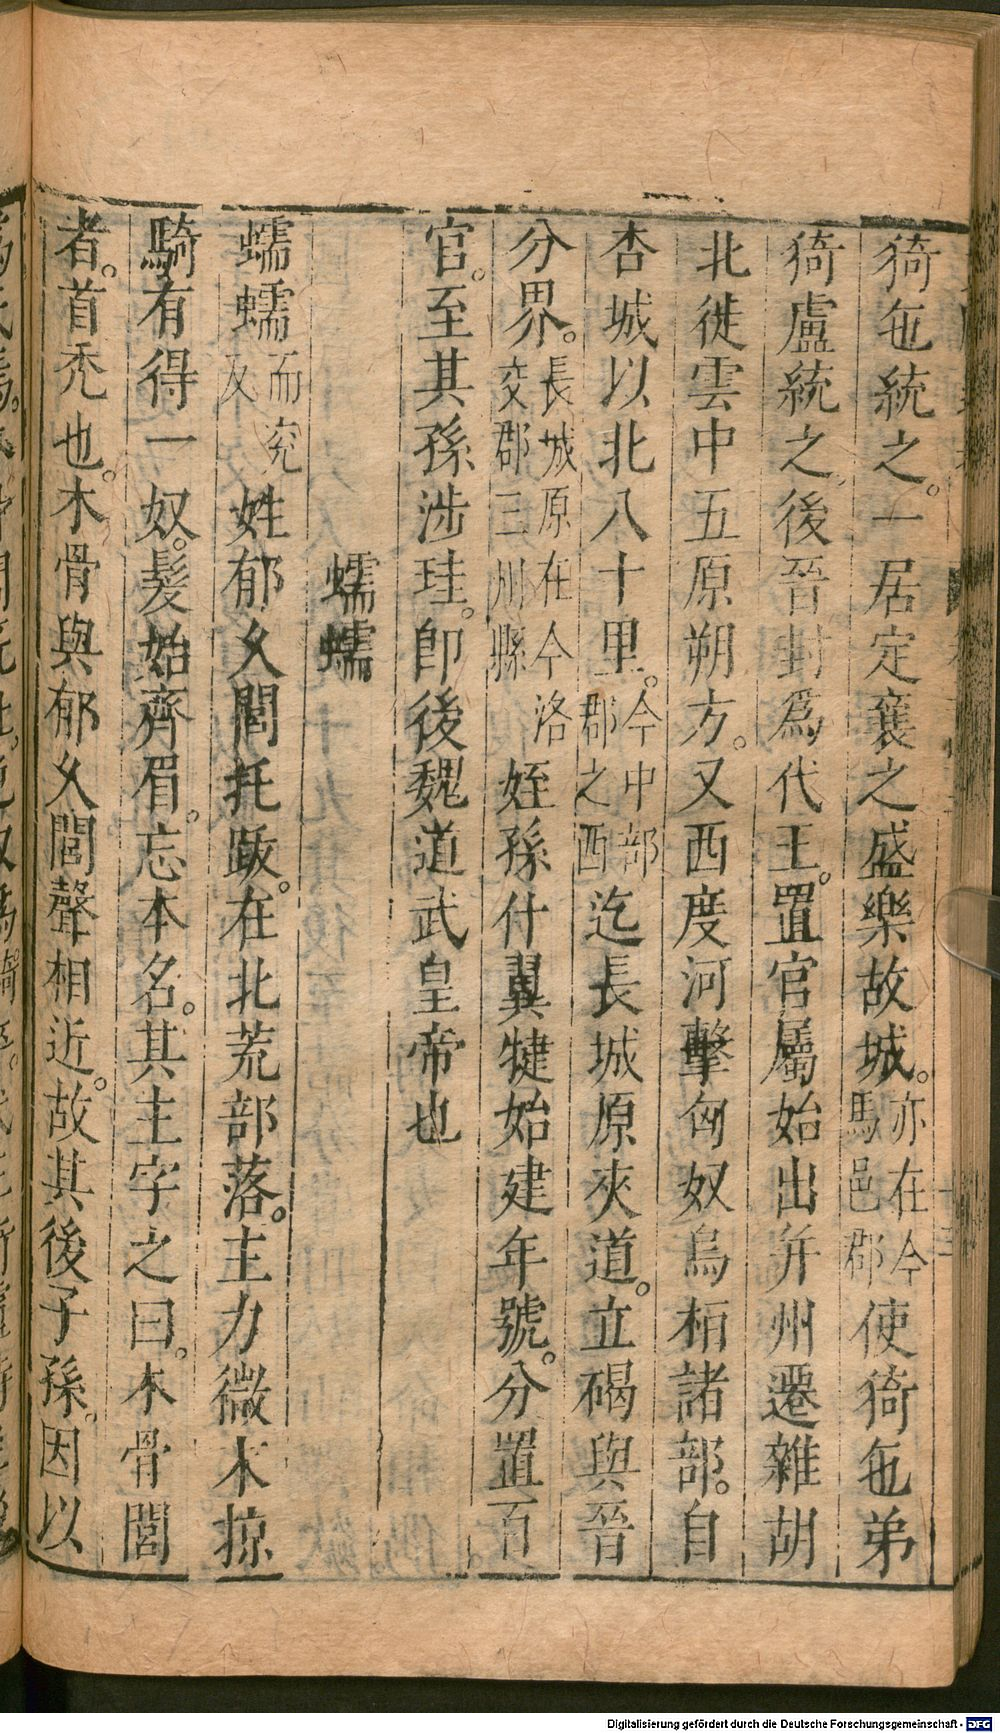 猗㐌統之。一居定襄之盛樂故城。亦在今馬邑郡使猗㐌弟
猗盧統之後晉封爲代王。置官屬始出幷州遷雜胡
北徙雲中五原朔方。又西度河擊匈奴烏桓諸部。自
杏城以北八十里。今中部郡之西迄長城原夾道。立碣與晉
分界。長城原在今洛交郡三川縣姪孫什翼犍始建年號。分置百
官。至其孫涉珪。卽後魏道武皇帝也
蠕蠕
蠕蠕而兖反姓郁久閭托跋。在北荒部落。主力微木掠
騎有得一奴。髮始齊眉。忘本名。其主字之曰。木骨閭
者。首禿也。木骨與郁久閭聲相近。故其後子孫。因以
Digitalisierung gefördert durch die Deutsche Forschungsgemeinschaft - DFG